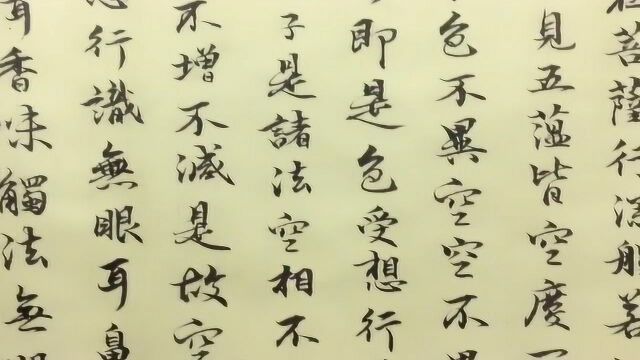 菩薩行深般若
見五蘊皆空度
色不異空空不異
即是色受想行
子是諸法空相不
不增不減是故空
想行識無眼耳鼻
香味觸法無眼